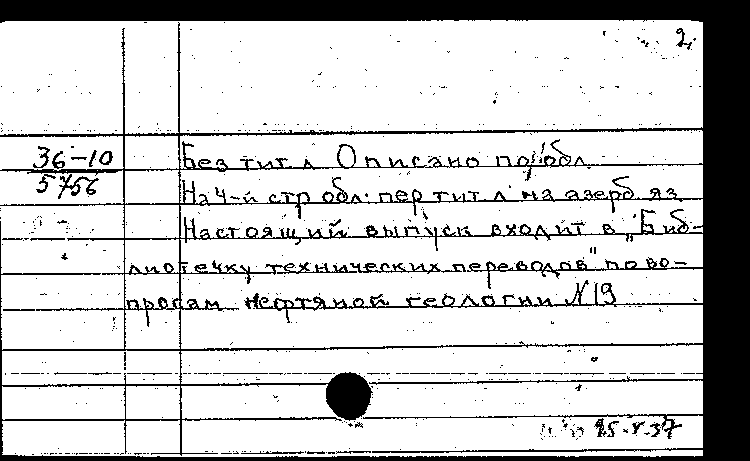 2.
36-10
5756
Без тит. л. Описано по обл.
На 4-й стр обл. пер тит. л. на азерб яз
Настоящий выпуск входит в „Биб-
лиотечку технических переводов" по во-
просам нефтяной геологии N 19
25.V.37